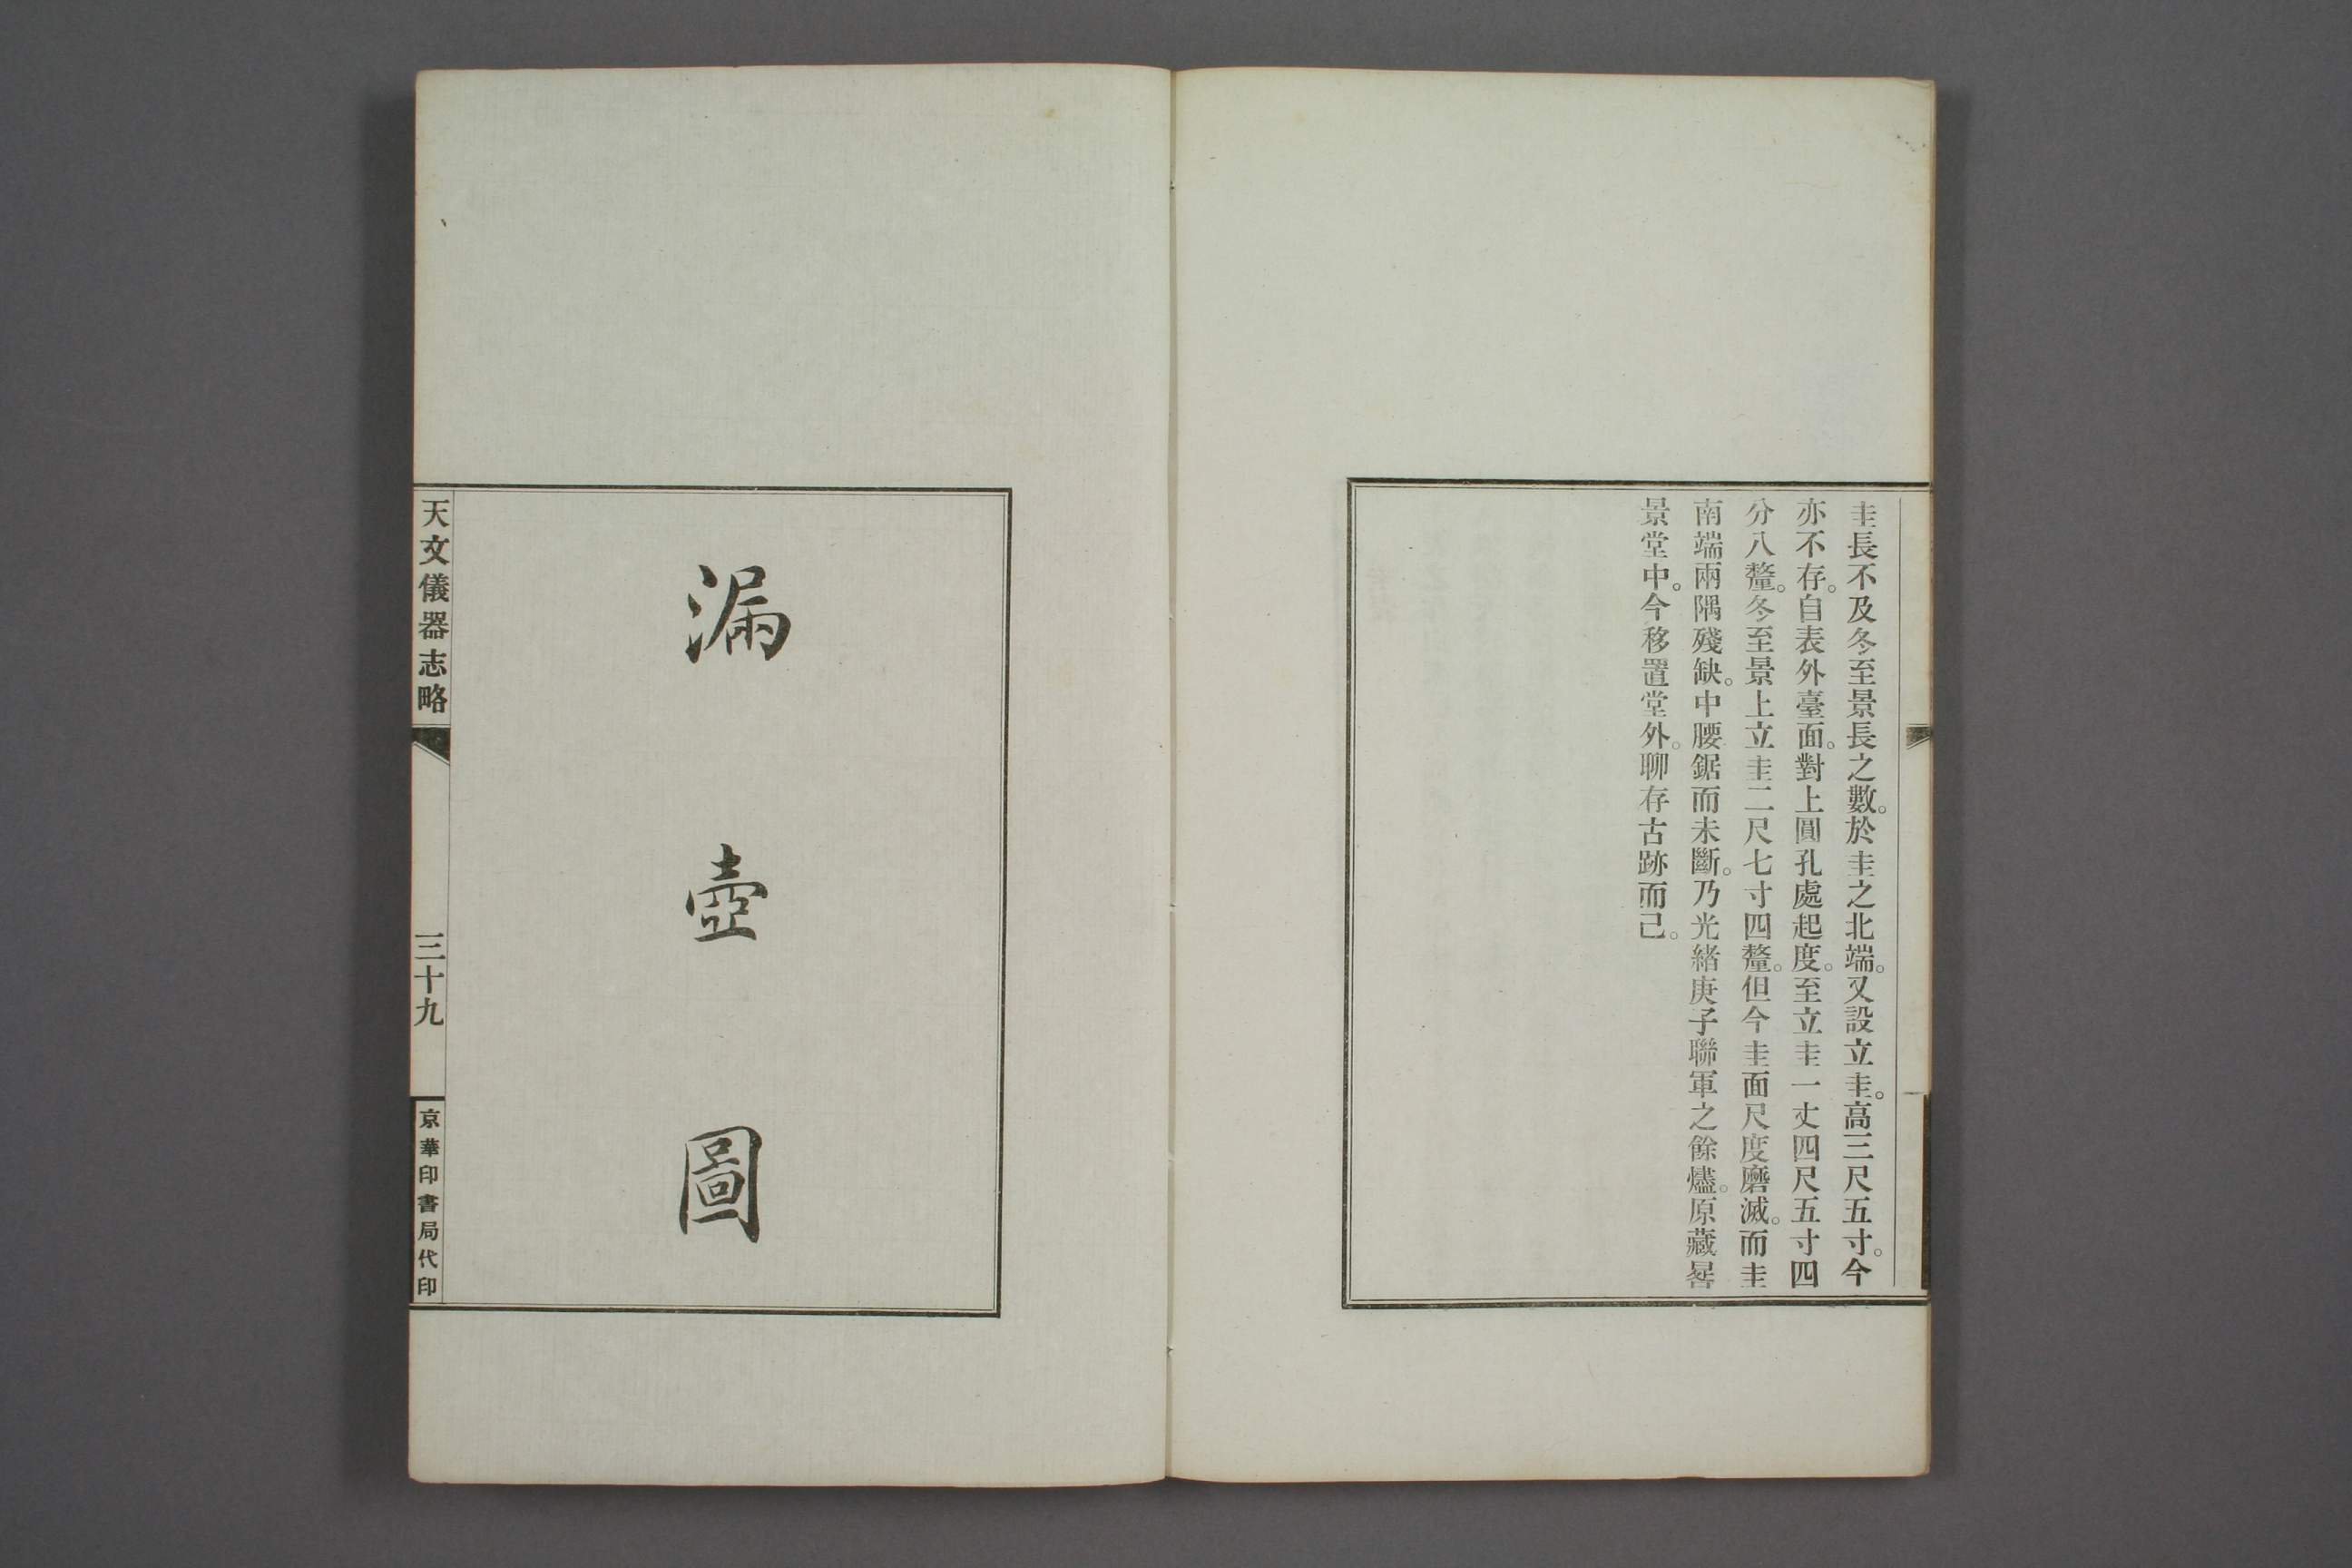 圭長不及冬至景長之數。於圭之北端。又設立圭。高三尺五寸。今
亦不存。自表外臺面。對上圓孔處起度。至立圭一丈四尺五寸四
分八釐。冬至景上立圭二尺七寸四釐。但今圭面尺度磨滅。而圭
南端兩隅殘缺。中腰鋸而未斷。乃光緒庚子聯軍之餘燼。原藏晷
景堂中。今移置堂外。聊存古跡而已。
漏壺圖
天文儀器志略
三十九
京華印書局代印